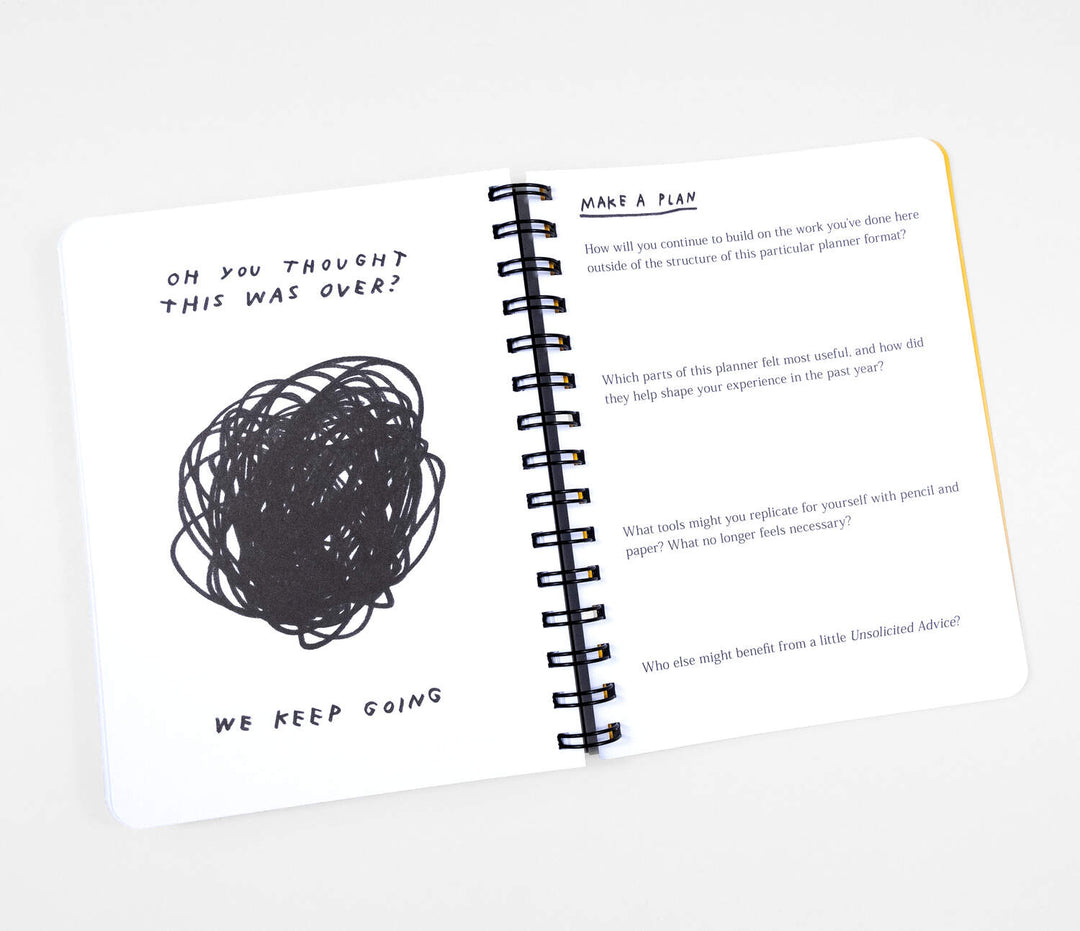 OH YOU THOUGHT
THIS WAS OVER?
WE KEEP GOING
MAKE A PLAN
How will you continue to build on the work you've done here
outside of the structure of this particular planner format?
Which parts of this planner felt most useful, and how did
they help shape your experience in the past year?
What tools might you replicate for yourself with pencil and
paper? What no longer feels necessary?
Who else might benefit from a little Unsolicited Advice?